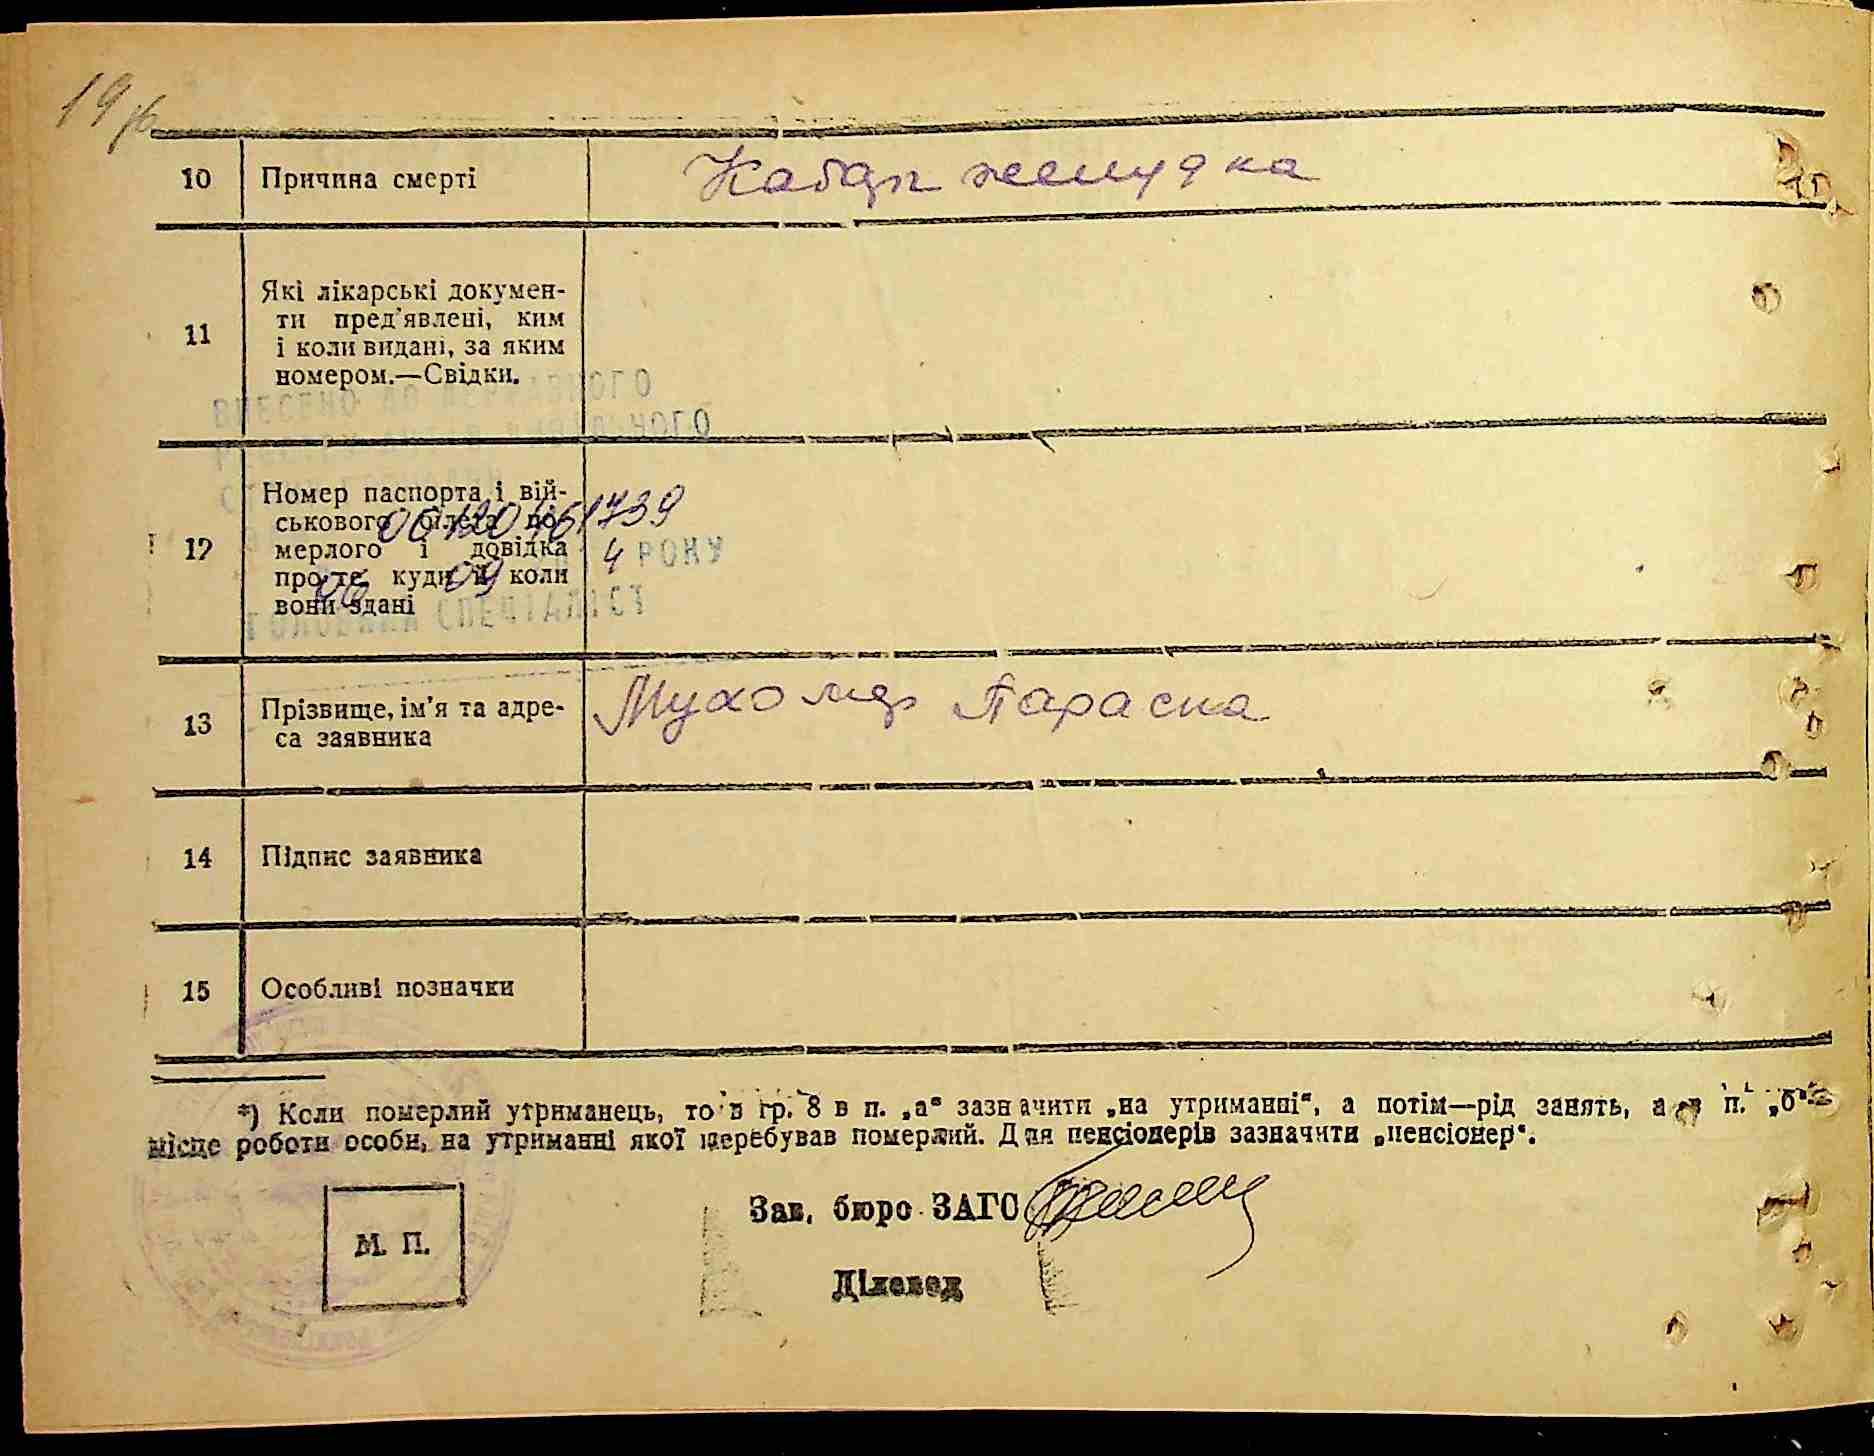 19
10 Причина смерті Катар желудка
11 Які лікарські докумен-
ти пред'явлені, ким
і коли видані, за яким
номером.—Свідки.
ВНЕСЕНО ДО ДЕРЖАВНОГО
12 Номер паспорта і вій-
ськового білета по-
мерлого і довідка
про те, куди й коли
вони здані
00120461739
06 09 4 РОКУ
ГОЛОВНИЙ СПЕЦІАЛІСТ
13 Прізвище, ім'я та адре-
са заявника
Мухомер Параска
14 Підпис заявника
15 Особливі позначки
*) Коли померлий утриманець, то в гр. 8 в п. „а“ зазначити „на утриманні“, а потім—рід занять, а в п. „б“—
місце роботи особи, на утриманні якої перебував померлий. Для пенсіонерів зазначити „пенсіонер“.
Зав. бюро ЗАГС
М. П.
Діловод